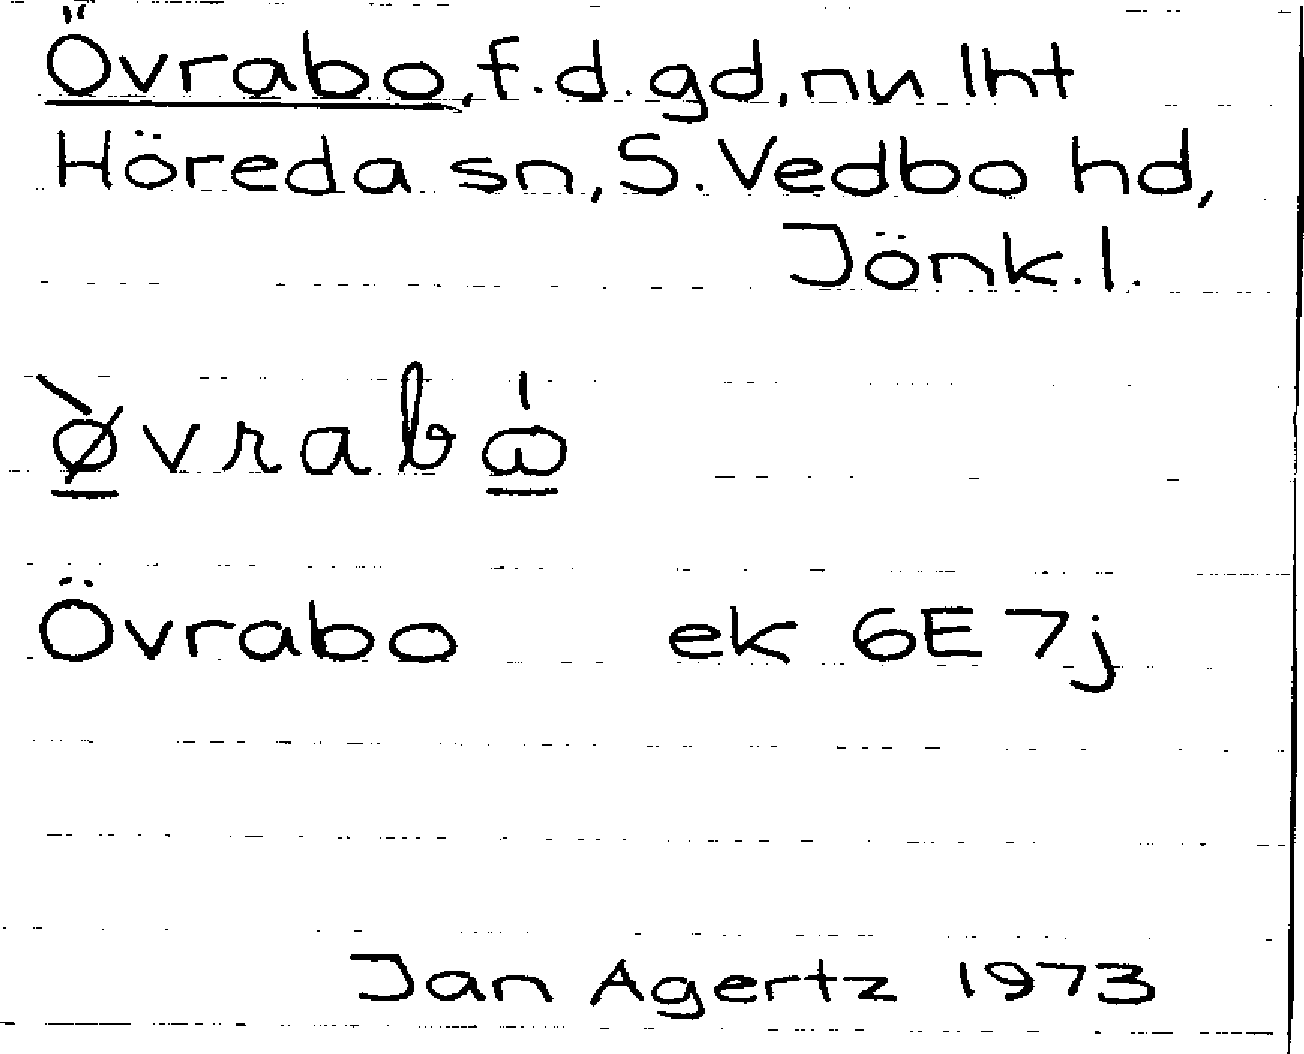 Övrabo, f.d. gd, nu lht
Höreda sn, S. Vedbo hd,
Jönk. l.
ø̲̀vrabω̲̍
Övrabo ek 6E 7j
Jan Agertz 1973